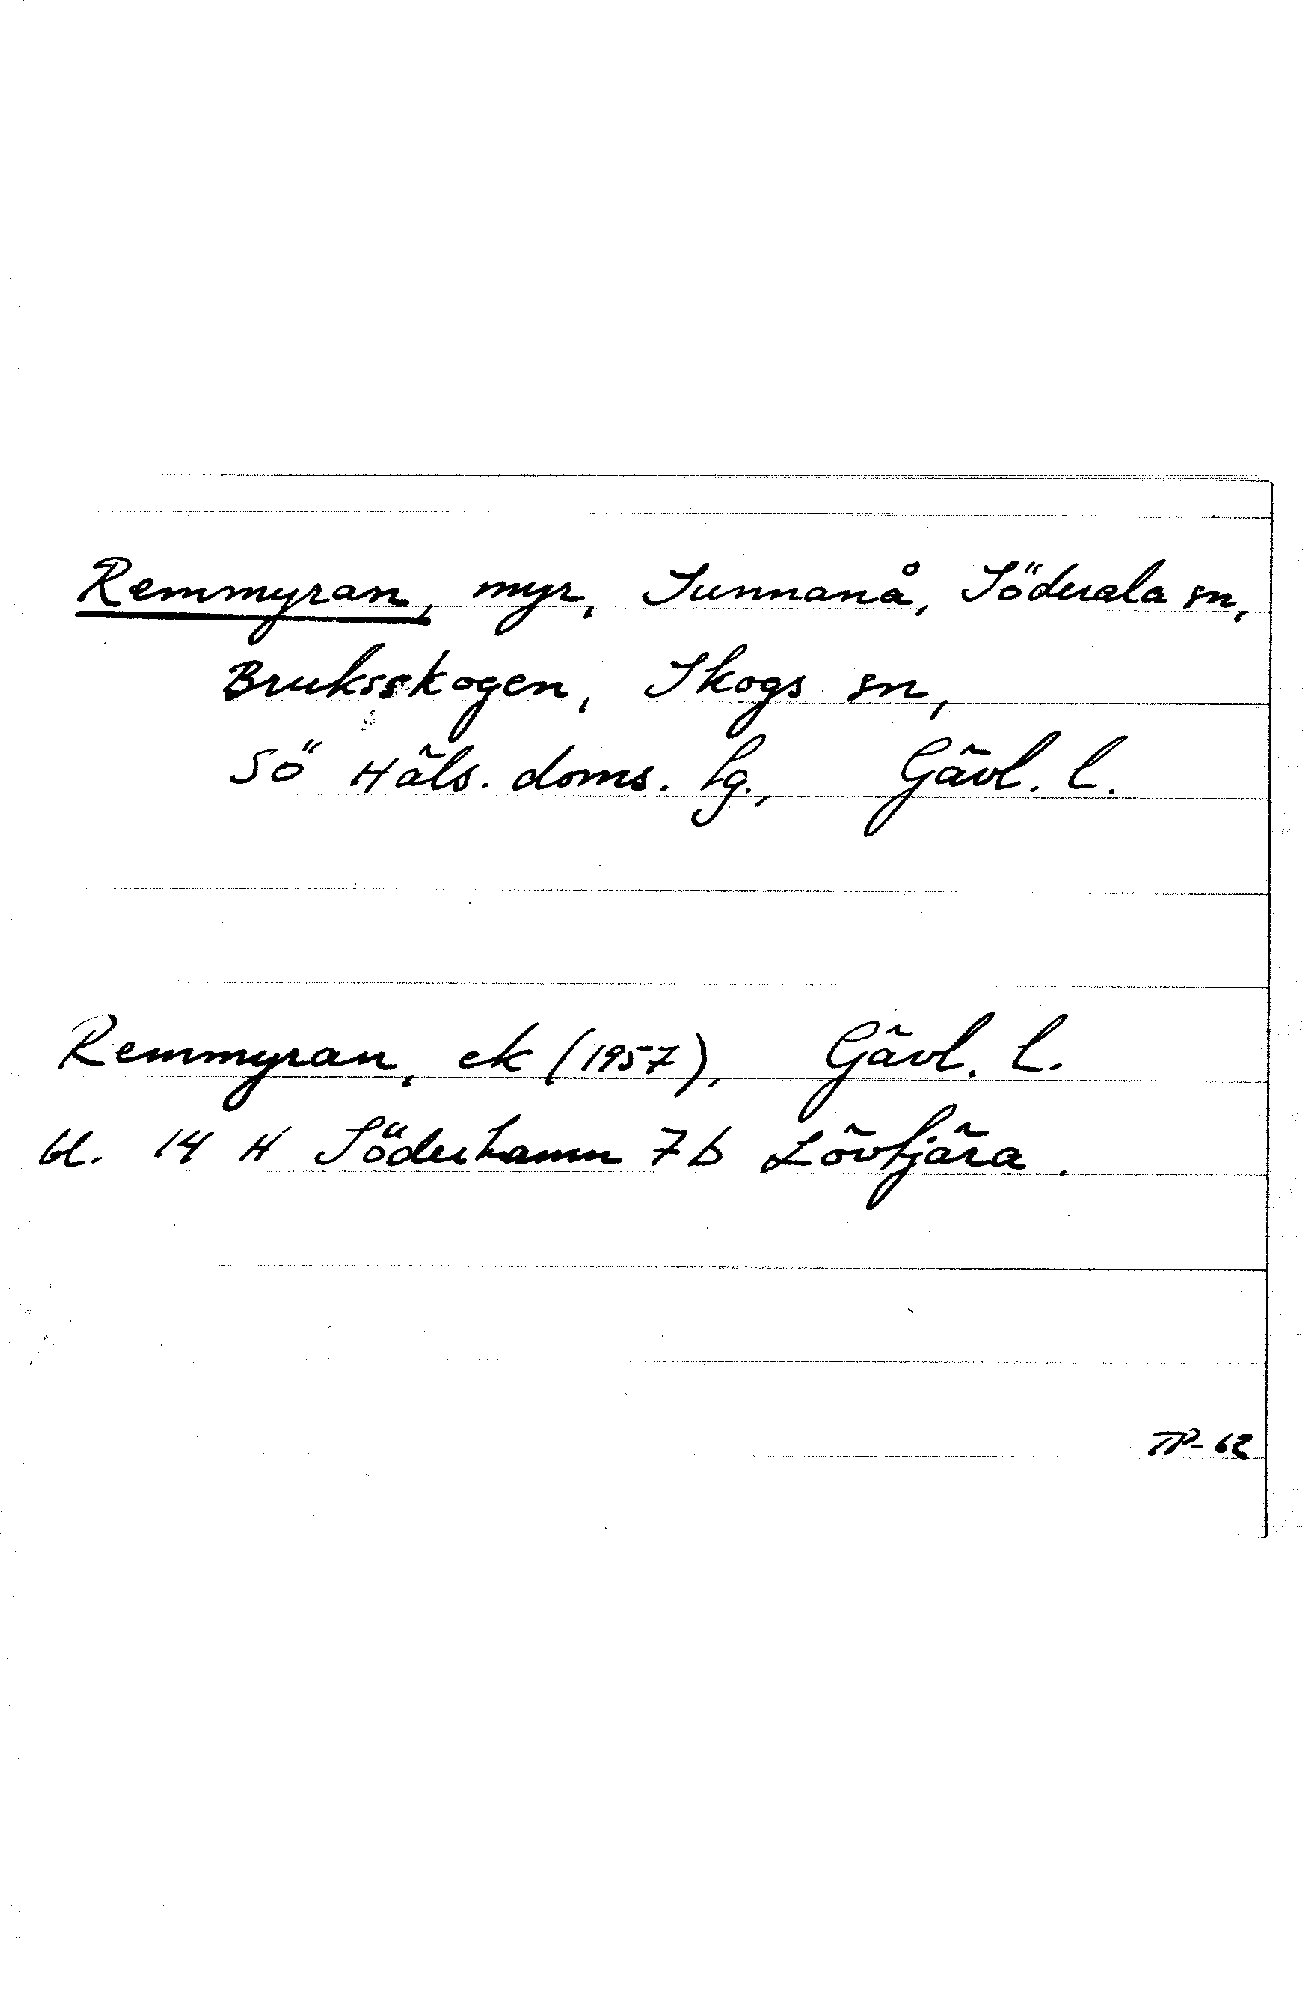 Remmyran, myr, Sunnanå, Söderala sn,
Bruksskogen, Skogs sn,
Sö Häls. doms. hg., Gävl. l.
Remmyran, ek (1957), Gävl. l.
bl. 14 H Söderhamn 7b Lövtjära.
TP-62